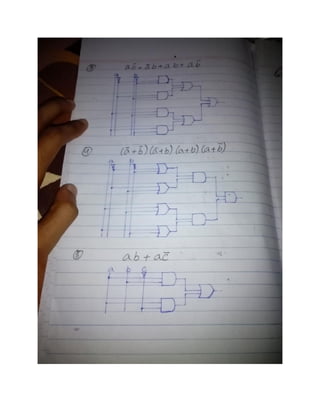 ③ ab̄ + āb + ab + ab̄
④ (ā+b̄)(ā+b)(a+b)(a+b̄)
a b
⑤ ab + ac̄
a b c